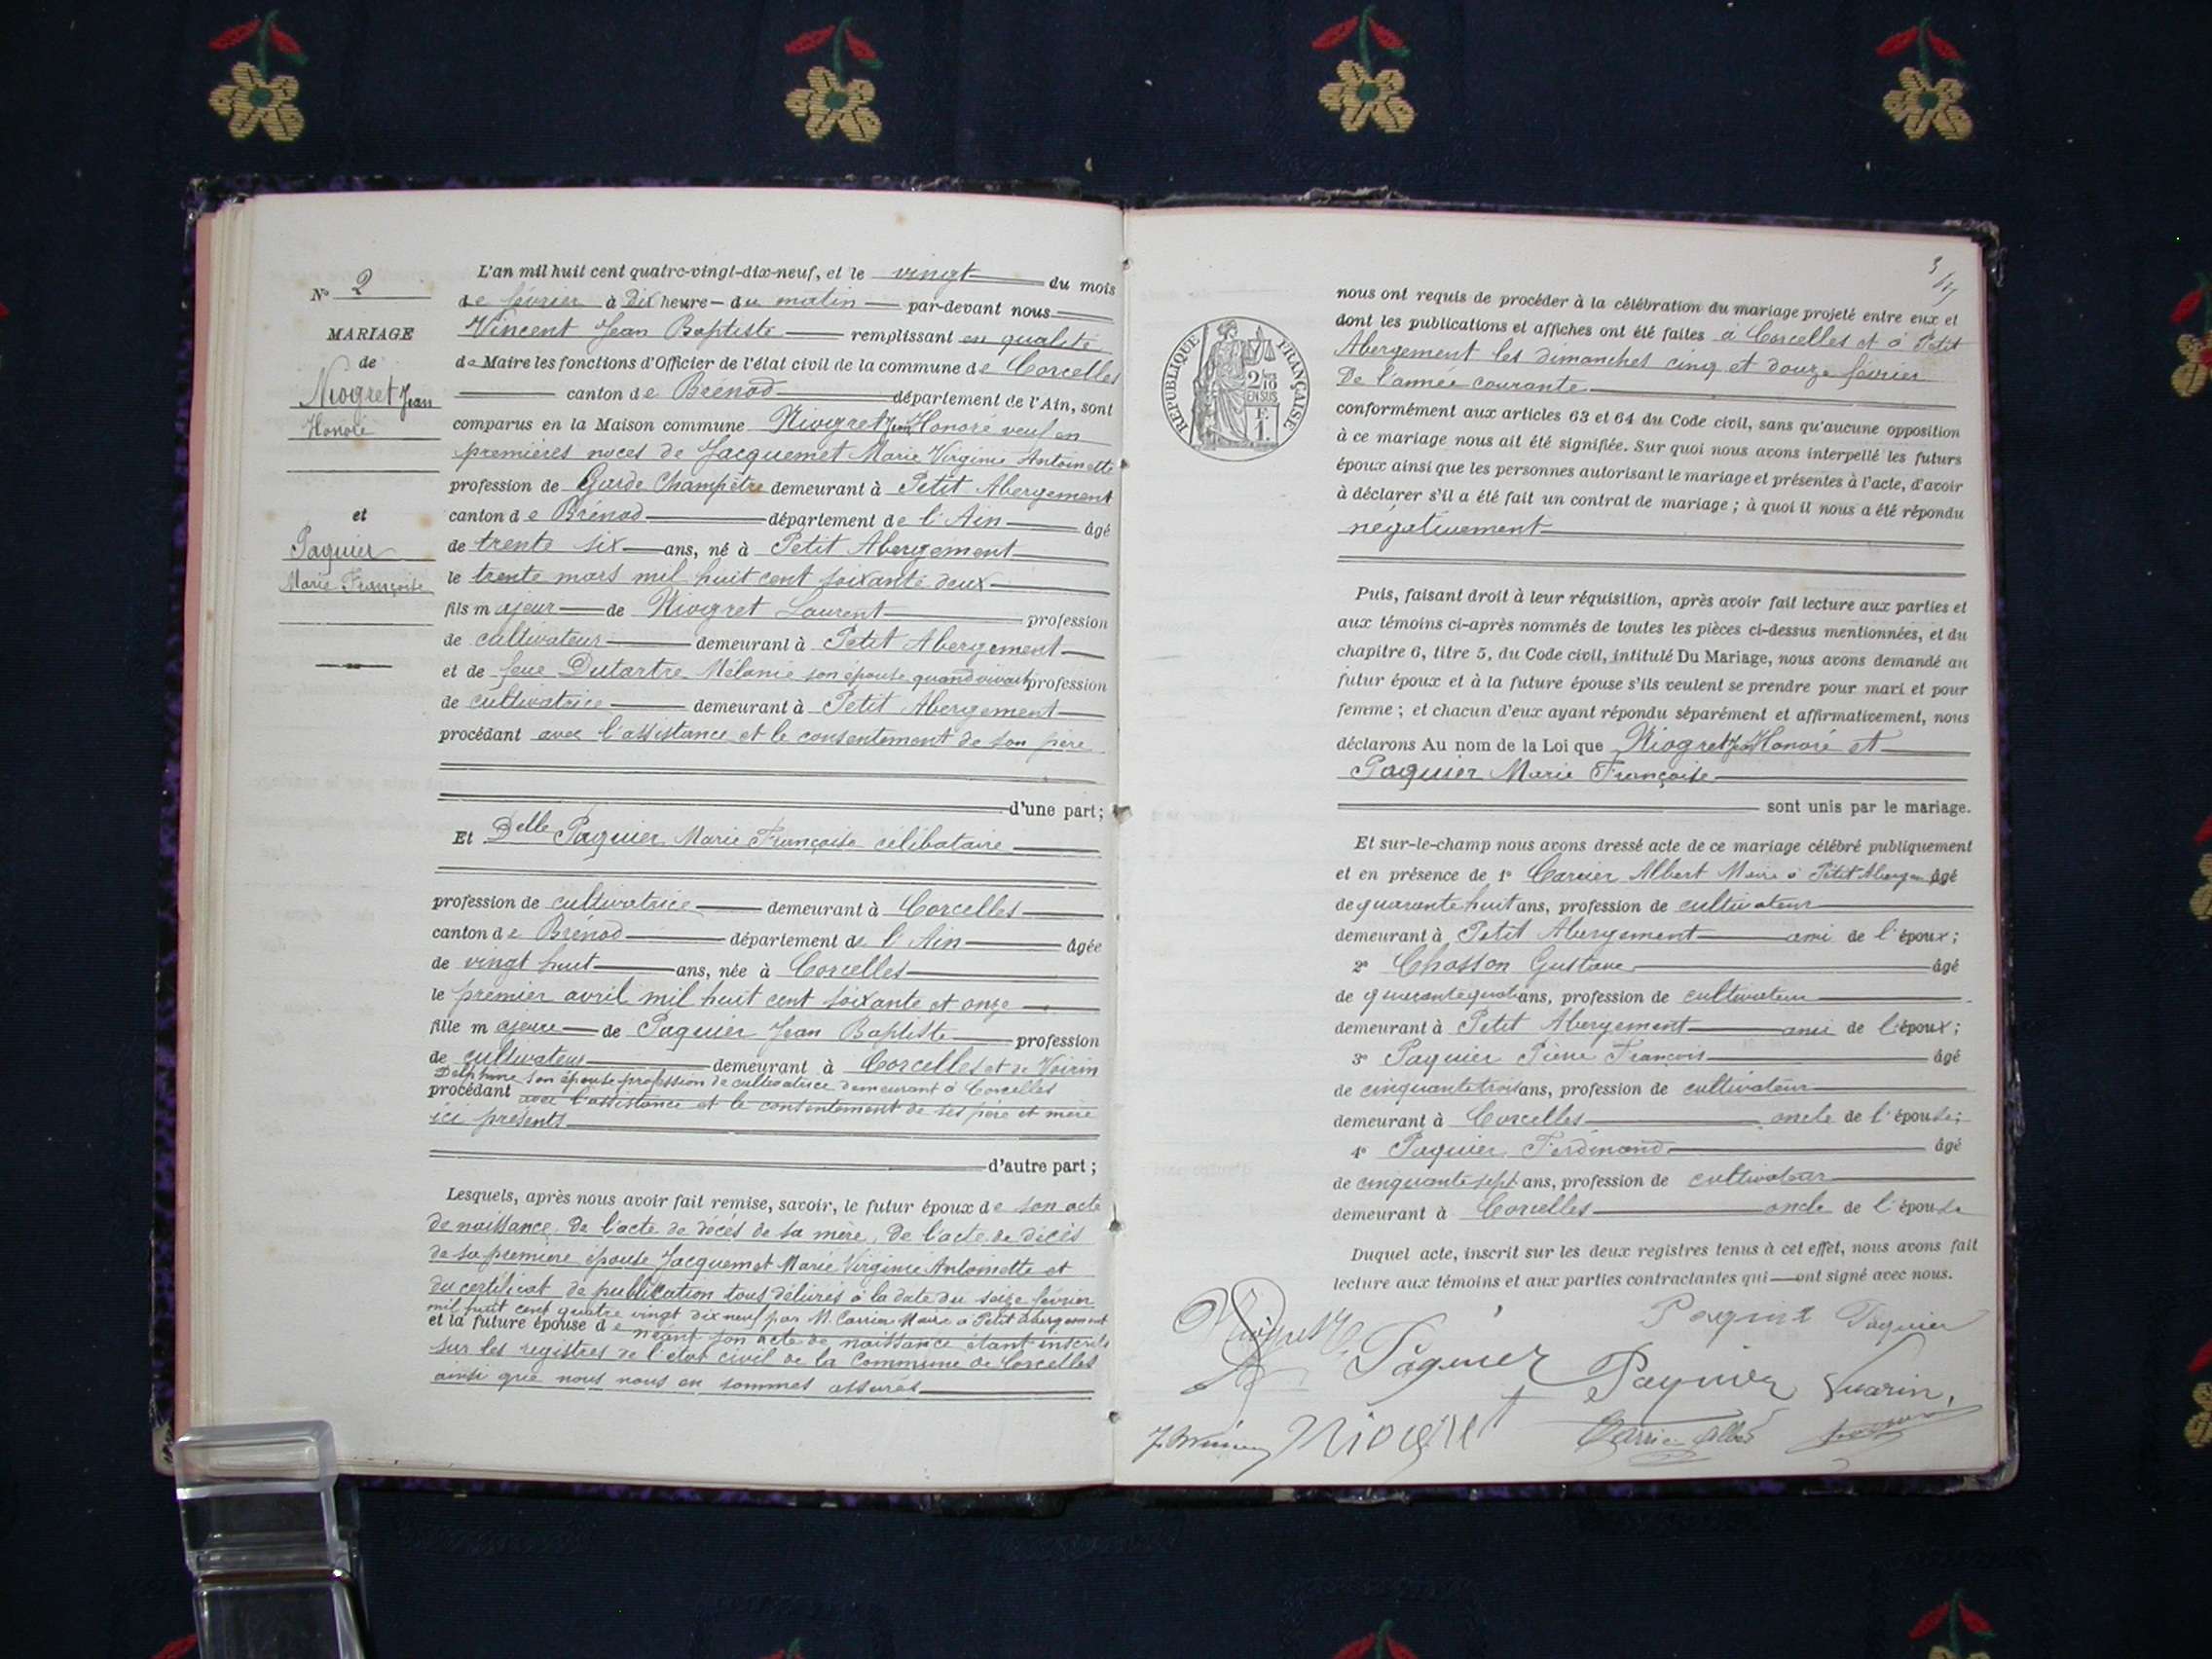 N° 2
MARIAGE
de
Niogret Jean
Honoré
et
Paquier
Marie Françoise
L'an mil huit cent quatre-vingt-dix-neuf, et le vingt du mois
de février à dix heure du matin par-devant nous
Vincent Jean Baptiste remplissant en qualité
de Maire les fonctions d'Officier de l'état civil de la commune de Corcelles
canton de Brénod département de l'Ain, sont
comparus en la Maison commune Niogret Jean Honoré veuf en
premières noces de Jacquemet Marie Virginie Antoinette
profession de Garde Champêtre demeurant à Petit Abergement
canton de Brénod département de l'Ain âgé
de trente six ans, né à Petit Abergement
le trente mars mil huit cent soixante deux
fils majeur de Niogret Laurent profession
de cultivateur demeurant à Petit Abergement
et de feue Dutartre Mélanie son épouse quand vivait profession
de cultivatrice demeurant à Petit Abergement
procédant avec l'assistance et le consentement de son père
d'une part;
Et Delle Paquier Marie Françoise célibataire
profession de cultivatrice demeurant à Corcelles
canton de Brénod département de l'Ain âgée
de vingt huit ans, née à Corcelles
le premier avril mil huit cent soixante et onze
fille majeure de Paquier Jean Baptiste profession
de cultivateur demeurant à Corcelles et de Voirin
Delphine son épouse profession de cultivatrice demeurant à Corcelles
procédant avec l'assistance et le consentement de ses père et mère
ici présents
d'autre part;
Lesquels, après nous avoir fait remise, savoir, le futur époux de son acte
de naissance, de l'acte de décès de sa mère, de l'acte de décès
de sa première épouse Jacquemet Marie Virginie Antoinette et
du certificat de publication tous délivrés à la date du seize février
mil huit cent quatre vingt dix neuf par M. Carrier Maire à Petit Abergement
et la future épouse de néant son acte de naissance étant inscrit
sur les registres de l'état civil de la Commune de Corcelles
ainsi que nous nous en sommes assurés
3
RÉPUBLIQUE FRANÇAISE
2/10
EN SUS
F.
1.
nous ont requis de procéder à la célébration du mariage projeté entre eux et
dont les publications et affiches ont été faites à Corcelles et à Petit
Abergement les dimanches cinq et douze février
de l'année courante
conformément aux articles 63 et 64 du Code civil, sans qu'aucune opposition
à ce mariage nous ait été signifiée. Sur quoi nous avons interpellé les futurs
époux ainsi que les personnes autorisant le mariage et présentes à l'acte, d'avoir
à déclarer s'il a été fait un contrat de mariage; à quoi il nous a été répondu
négativement
Puis, faisant droit à leur réquisition, après avoir fait lecture aux parties et
aux témoins ci-après nommés de toutes les pièces ci-dessus mentionnées, et du
chapitre 6, titre 5, du Code civil, intitulé Du Mariage, nous avons demandé au
futur époux et à la future épouse s'ils veulent se prendre pour mari et pour
femme; et chacun d'eux ayant répondu séparément et affirmativement, nous
déclarons Au nom de la Loi que Niogret Jean Honoré et
Paquier Marie Françoise
sont unis par le mariage.
Et sur-le-champ nous avons dressé acte de ce mariage célébré publiquement
et en présence de 1° Carrier Albert Maire à Petit Abergem âgé
de quarante huit ans, profession de cultivateur
demeurant à Petit Abergement ami de l'époux;
2° Chosson Gustave âgé
de quarante quatre ans, profession de cultivateur
demeurant à Petit Abergement ami de l'époux;
3° Paquier Pierre François âgé
de cinquante trois ans, profession de cultivateur
demeurant à Corcelles oncle de l'épouse;
4° Paquier Ferdinand âgé
de cinquante sept ans, profession de cultivateur
demeurant à Corcelles oncle de l'épouse
Duquel acte, inscrit sur les deux registres tenus à cet effet, nous avons fait
lecture aux témoins et aux parties contractantes qui ont signé avec nous.
Paquier
Niogret H.
Paquier
Paquier
Niogret
Carrier Albert